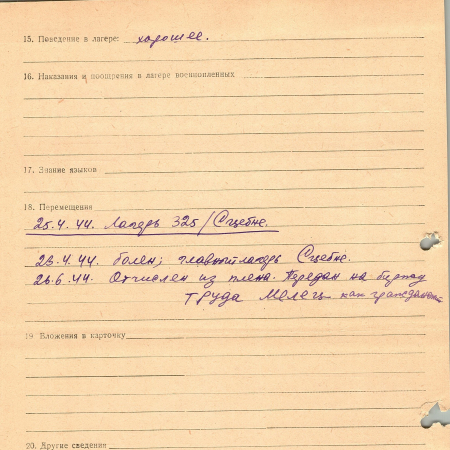 15. Поведение в лагере: хорошее.
16. Наказания и поощрения в лагере военнопленных
17. Знание языков
18. Перемещения
25.4.44. Лагерь 325/Сщебне.
23.4.44. болен; главный лагерь Сщебне.
26.6.44. Отчислен из плена. Передан на биржу
труда Мелец как гражданск
19 Вложения в карточку
20. Другие сведения